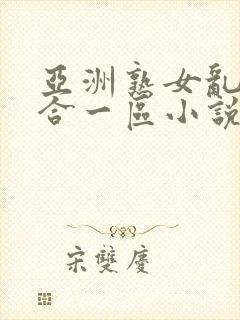 亞洲熟女亂
合一區小說
宋雙慶